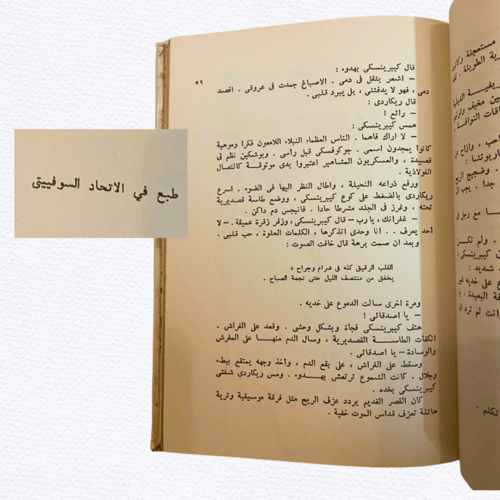 ٥٩
قال كيبرينسكى بهدوء :
– اشعر بثقل فى دمى . الاصباغ جمدت فى عروقى . اقصد
دمى ، فهو لا يدفئنى ، بل يبرد قلبى .
قال ريكاردى :
– رائع !
همس كيبرينسكى :
– لا اراك فاهما . الناس العظماء النبلاء اللامعون فكرا وموهبة
كانوا يمجدون اسمى . جوكوفسكى قبل رأسى . وبوشكين نظم لى
قصيدة ، والعسكريون المشاهير اعتبروا يدى موثوقة كالنصال
الفولاذية .
ورفع ذراعه النحيلة ، واطال النظر اليها فى الضوء . اسرع
ريكاردى بالضغط على كوع كيبرينسكى ، ووضع طاسة قصديرية
تحته ، وغرز فى الجلد مشرطا حادا . فانبجس دم داكن .
– غفرانك ، يا رب – قال كيبرينسكى ، وزفر زفرة عميقة . – لا
احد يعرف . . انا وحدى اتذكرها ، الكلمات الحلوة ، حب قلبى .
وبعد ان صمت برهة قال خافت الصوت :
القلب الرقيق كله فى غرام وجراح ،
يخفق من منتصف الليل حتى نجمة الصباح .
ومرة اخرى سالت الدموع على خديه .
– يا اصدقائى !
هتف كيبرينسكى فجأة وبشكل وحشى . وقعد على الفراش .
انكفأت الطاسة القصديرية ، وسال الدم على المفرش
والوسادة – يا اصدقائى .
وسقط على الفراش ، على بقع الدم ، واخذ وجهه يمتقع ببطء
وجلال . كانت الشموع ترتعش بهدوء . ومس ريكاردى شفتى
كيبرينسكى بخده .
كان القصر القديم يردد عزف الريح مثل فرقة موسيقية وترية
هائلة تعزف قداس الموت خفية .
طبع في الاتحاد السوفييتى